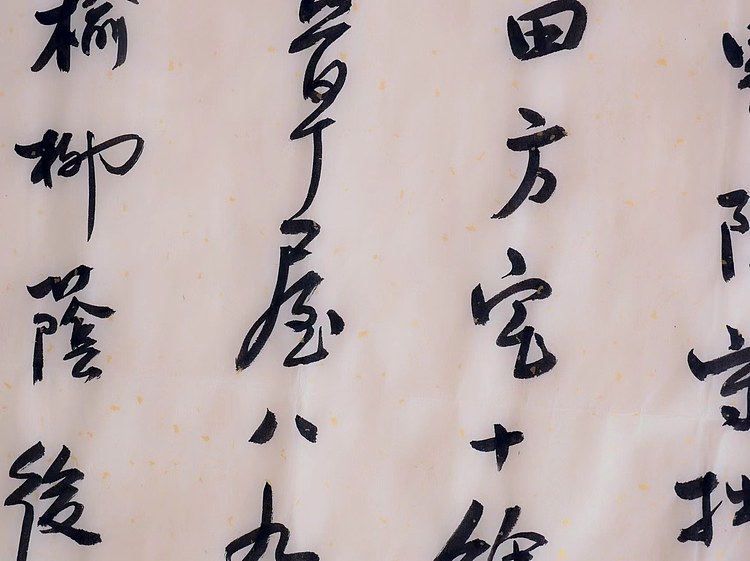 守拙
田方宅十餘
草屋八九
榆柳蔭後